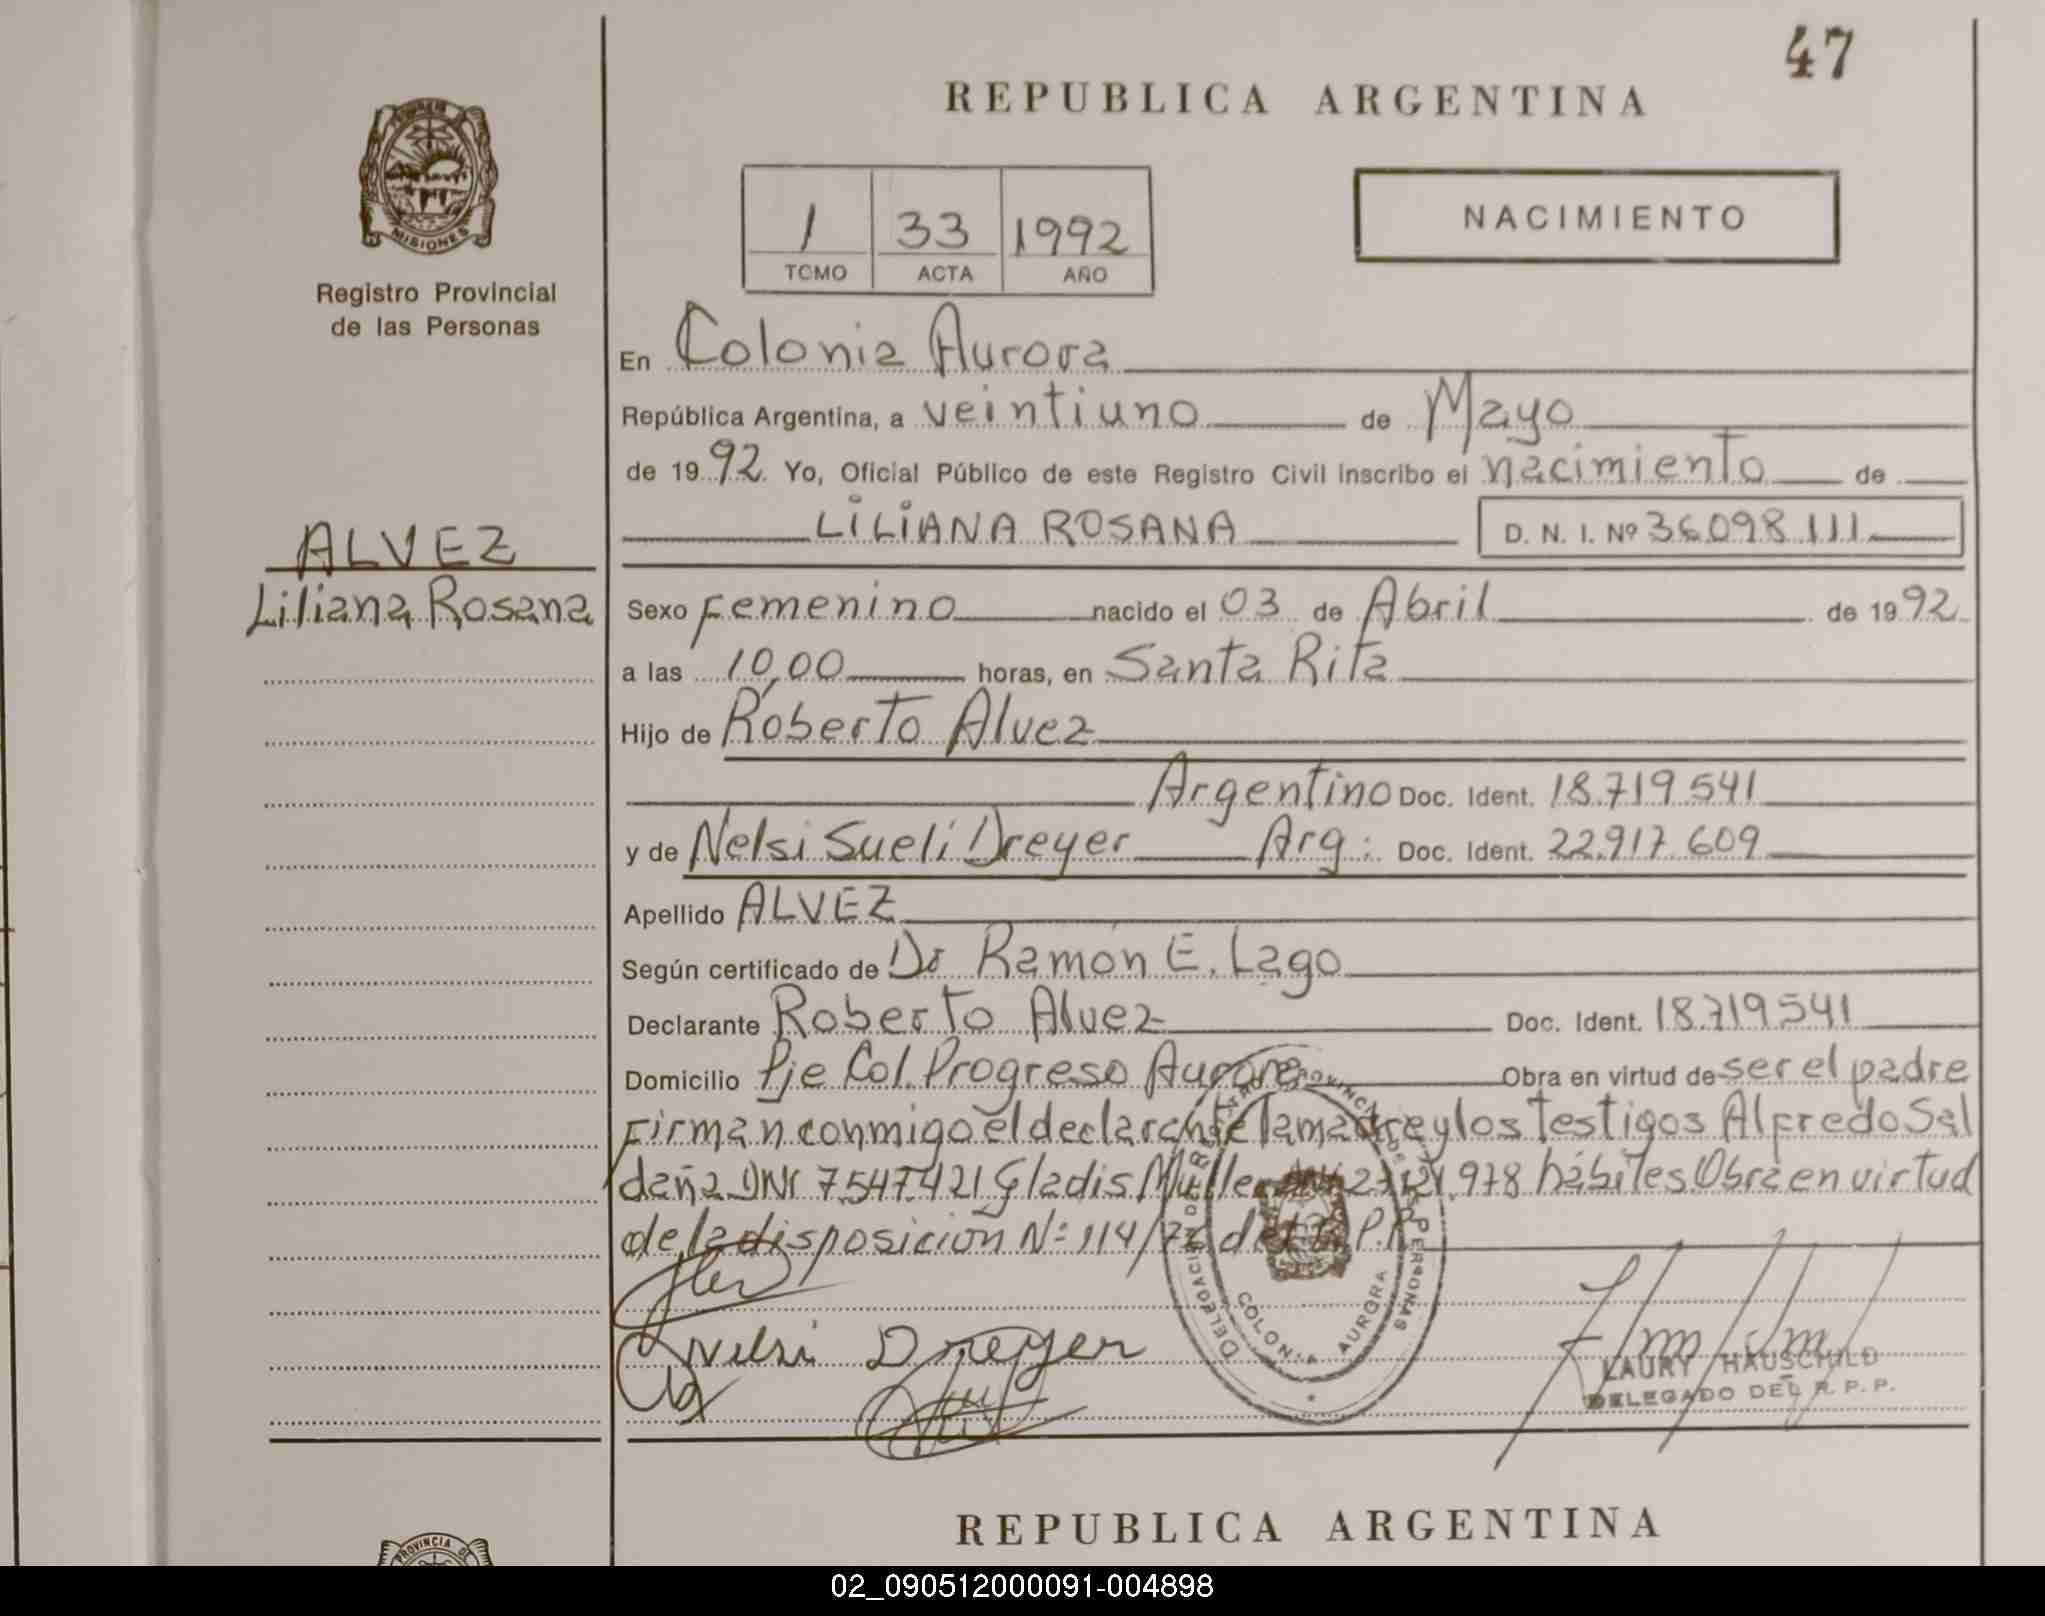 47
REPUBLICA ARGENTINA
MISIONES
Registro Provincial
de las Personas
1 33 1992
TOMO ACTA AÑO
NACIMIENTO
En Colonia Aurora
República Argentina, a veintiuno de Mayo
de 1992. Yo, Oficial Público de este Registro Civil inscribo el nacimiento de
LILIANA ROSANA D. N. I. Nº 36.098.111
ALVEZ
Liliana Rosana
Sexo Femenino nacido el 03 de Abril de 1992
a las 10,00 horas, en Santa Rita
Hijo de Roberto Alvez
Argentino Doc. Ident. 18.719.541
y de Nelsi Sueli Dreyer Arg: Doc. Ident. 22.917.609
Apellido ALVEZ
Según certificado de Dr Ramón E. Lago
Declarante Roberto Alvez Doc. Ident. 18.719.541
Domicilio Pje Col. Progreso Aurora Obra en virtud de ser el padre
Firman conmigo el declarante la madre y los testigos Alfredo Sal
daña DNI 7.547.421 Gladis Muller .978 hábiles. Obra en virtud
de la disposición Nº 114/ del P.P.
Nelsi Dreyer
DELEGACION DE LAS PERSONAS
COLONIA AURORA
LAURY HAUSCHILD
DELEGADO DEL R. P. P.
REPUBLICA ARGENTINA
PROVINCIA DE
02_090512000091-004898